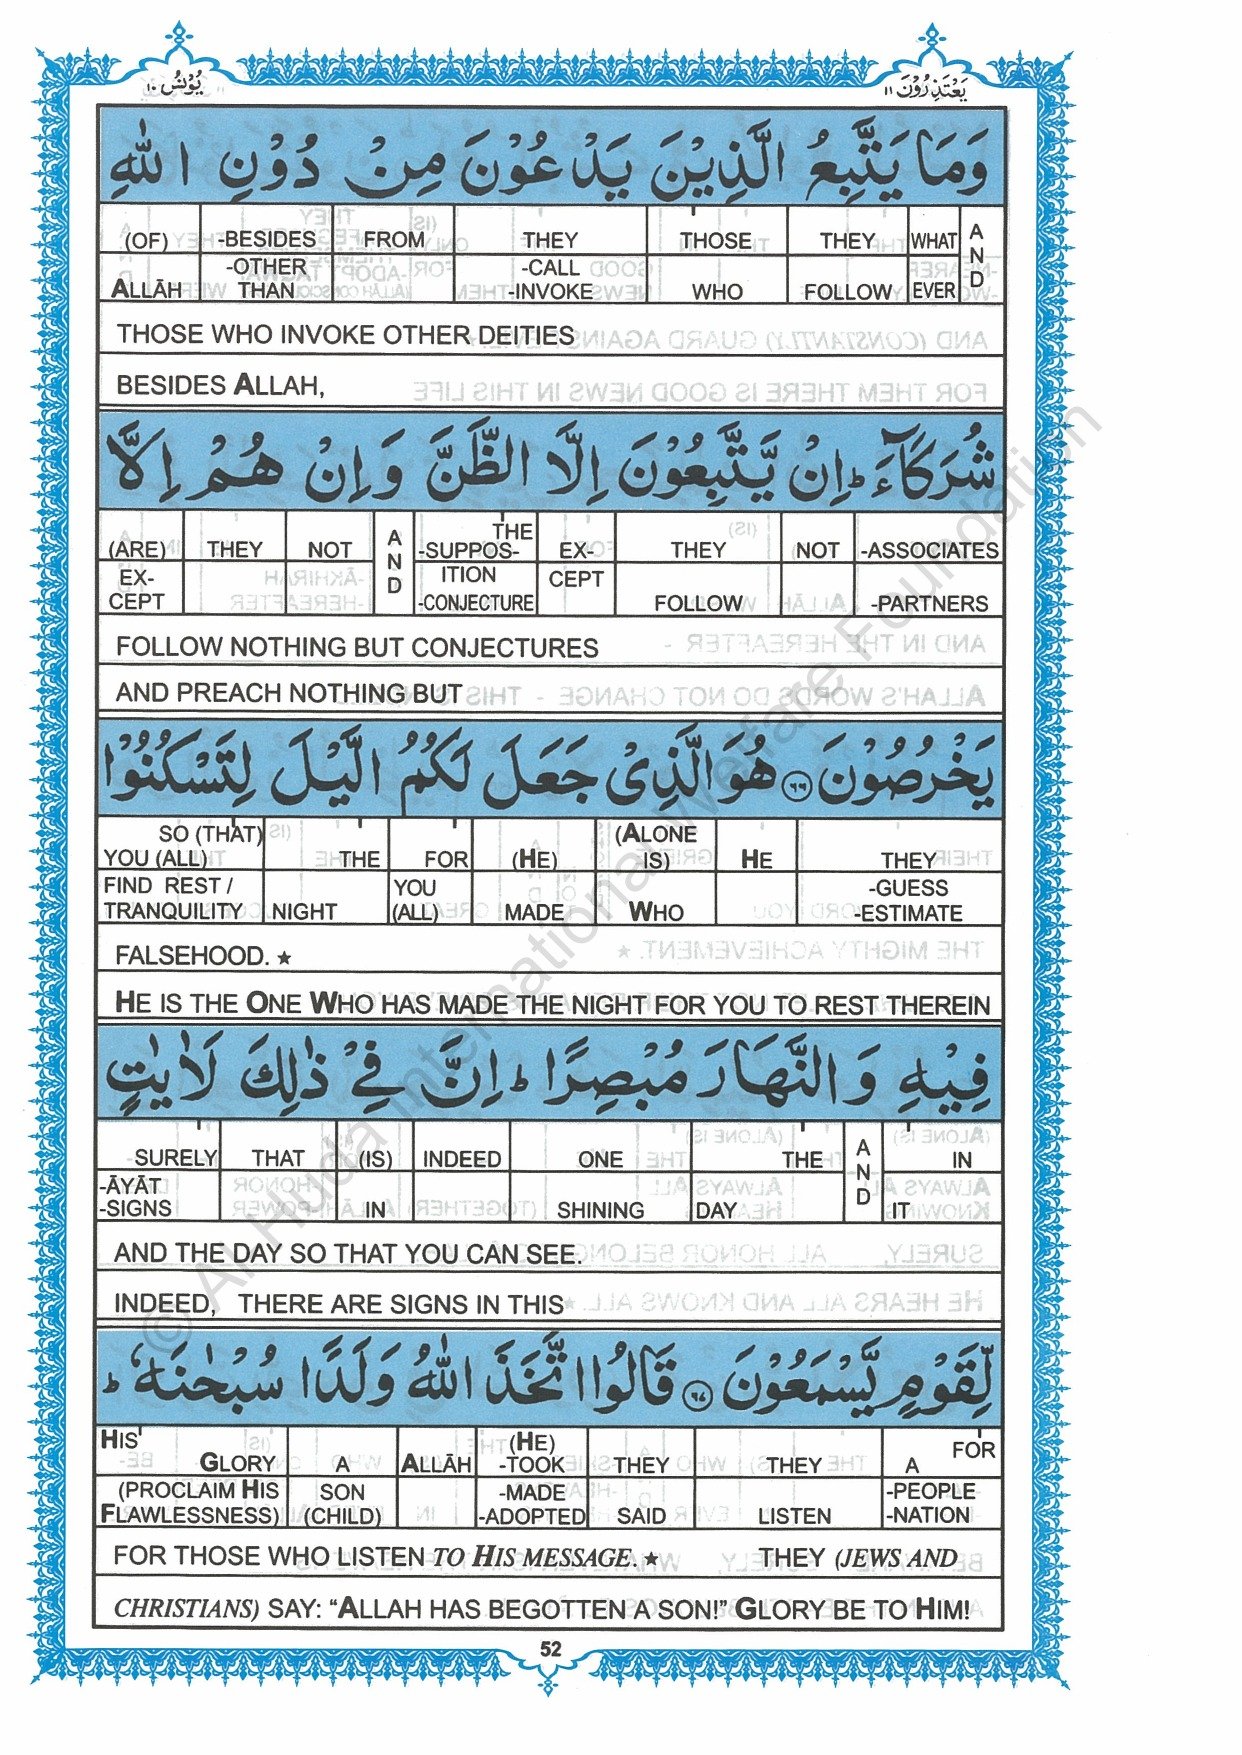 يَعْتَذِرُوْنَ ١١
يُوْنُسُ ١٠
وَمَا يَتَّبِعُ الَّذِيْنَ يَدْعُوْنَ مِنْ دُوْنِ اللّٰهِ
(OF) -BESIDES FROM THEY THOSE THEY WHAT AND
ALLĀH -OTHER THAN -CALL -INVOKE WHO FOLLOW EVER
THOSE WHO INVOKE OTHER DEITIES
BESIDES ALLAH,
شُرَكَآءَ ؕ اِنْ يَّتَّبِعُوْنَ اِلَّا الظَّنَّ وَاِنْ هُمْ اِلَّا
(ARE) THEY NOT AND THE -SUPPOS- EX- THEY NOT -ASSOCIATES
EX-CEPT ITION -CONJECTURE CEPT FOLLOW -PARTNERS
FOLLOW NOTHING BUT CONJECTURES
AND PREACH NOTHING BUT
يَخْرُصُوْنَ ۝٦٦ هُوَالَّذِىْ جَعَلَ لَكُمُ الَّيْلَ لِتَسْكُنُوْا
SO (THAT) YOU (ALL) THE FOR (HE) (ALONE IS) HE THEY
FIND REST / TRANQUILITY NIGHT YOU (ALL) MADE WHO -GUESS -ESTIMATE
FALSEHOOD. ★
HE IS THE ONE WHO HAS MADE THE NIGHT FOR YOU TO REST THEREIN
فِيْهِ وَالنَّهَارَ مُبْصِرًا ؕ اِنَّ فِىْ ذٰلِكَ لَاٰيٰتٍ
SURELY THAT (IS) INDEED ONE THE AND IN
-ĀYĀT -SIGNS IN SHINING DAY IT
AND THE DAY SO THAT YOU CAN SEE.
INDEED, THERE ARE SIGNS IN THIS
لِّقَوْمٍ يَّسْمَعُوْنَ ۝٦٧ قَالُوا اتَّخَذَ اللّٰهُ وَلَدًا سُبْحٰنَهٗ ؕ
HIS GLORY A ALLĀH (HE) -TOOK THEY THEY A FOR
(PROCLAIM HIS FLAWLESSNESS) SON (CHILD) -MADE -ADOPTED SAID LISTEN -PEOPLE -NATION
FOR THOSE WHO LISTEN TO HIS MESSAGE. ★ THEY (JEWS AND
CHRISTIANS) SAY: “ALLAH HAS BEGOTTEN A SON!” GLORY BE TO HIM!
52
© Al Huda International Welfare Foundation